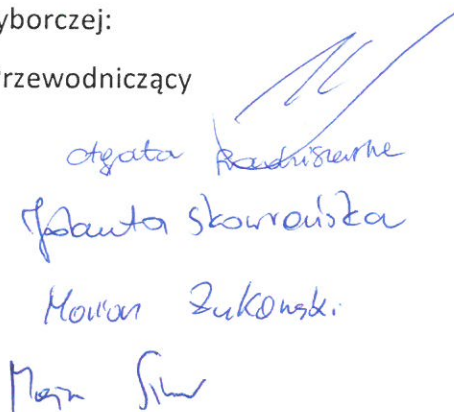 yborczej:
rzewodniczący
Agata Radziszewska
Jolanta Skowrońska
Marian Żukowski